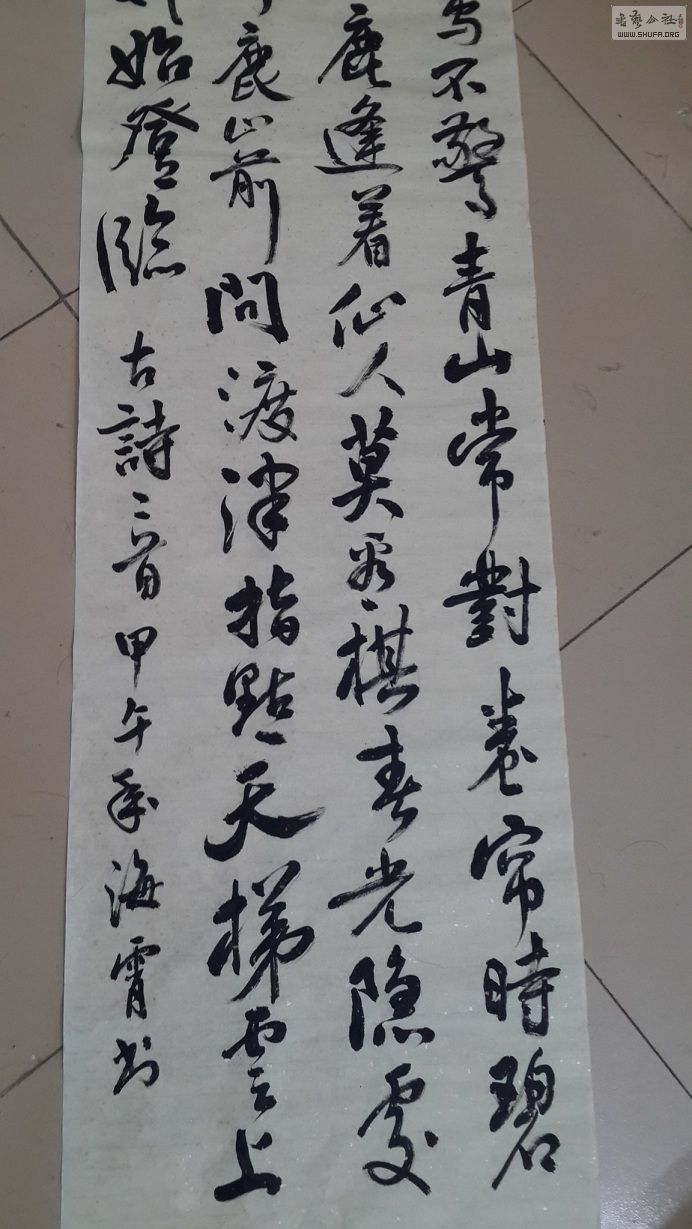 鸟不驚青山常對卷帘時碧
鹿逢着仙人莫看棋春光隐處
鹿山前問渡津指點天梯雲上
始登臨 古詩三首甲午年海霄书
書藝公社
WWW.SHUFA.ORG